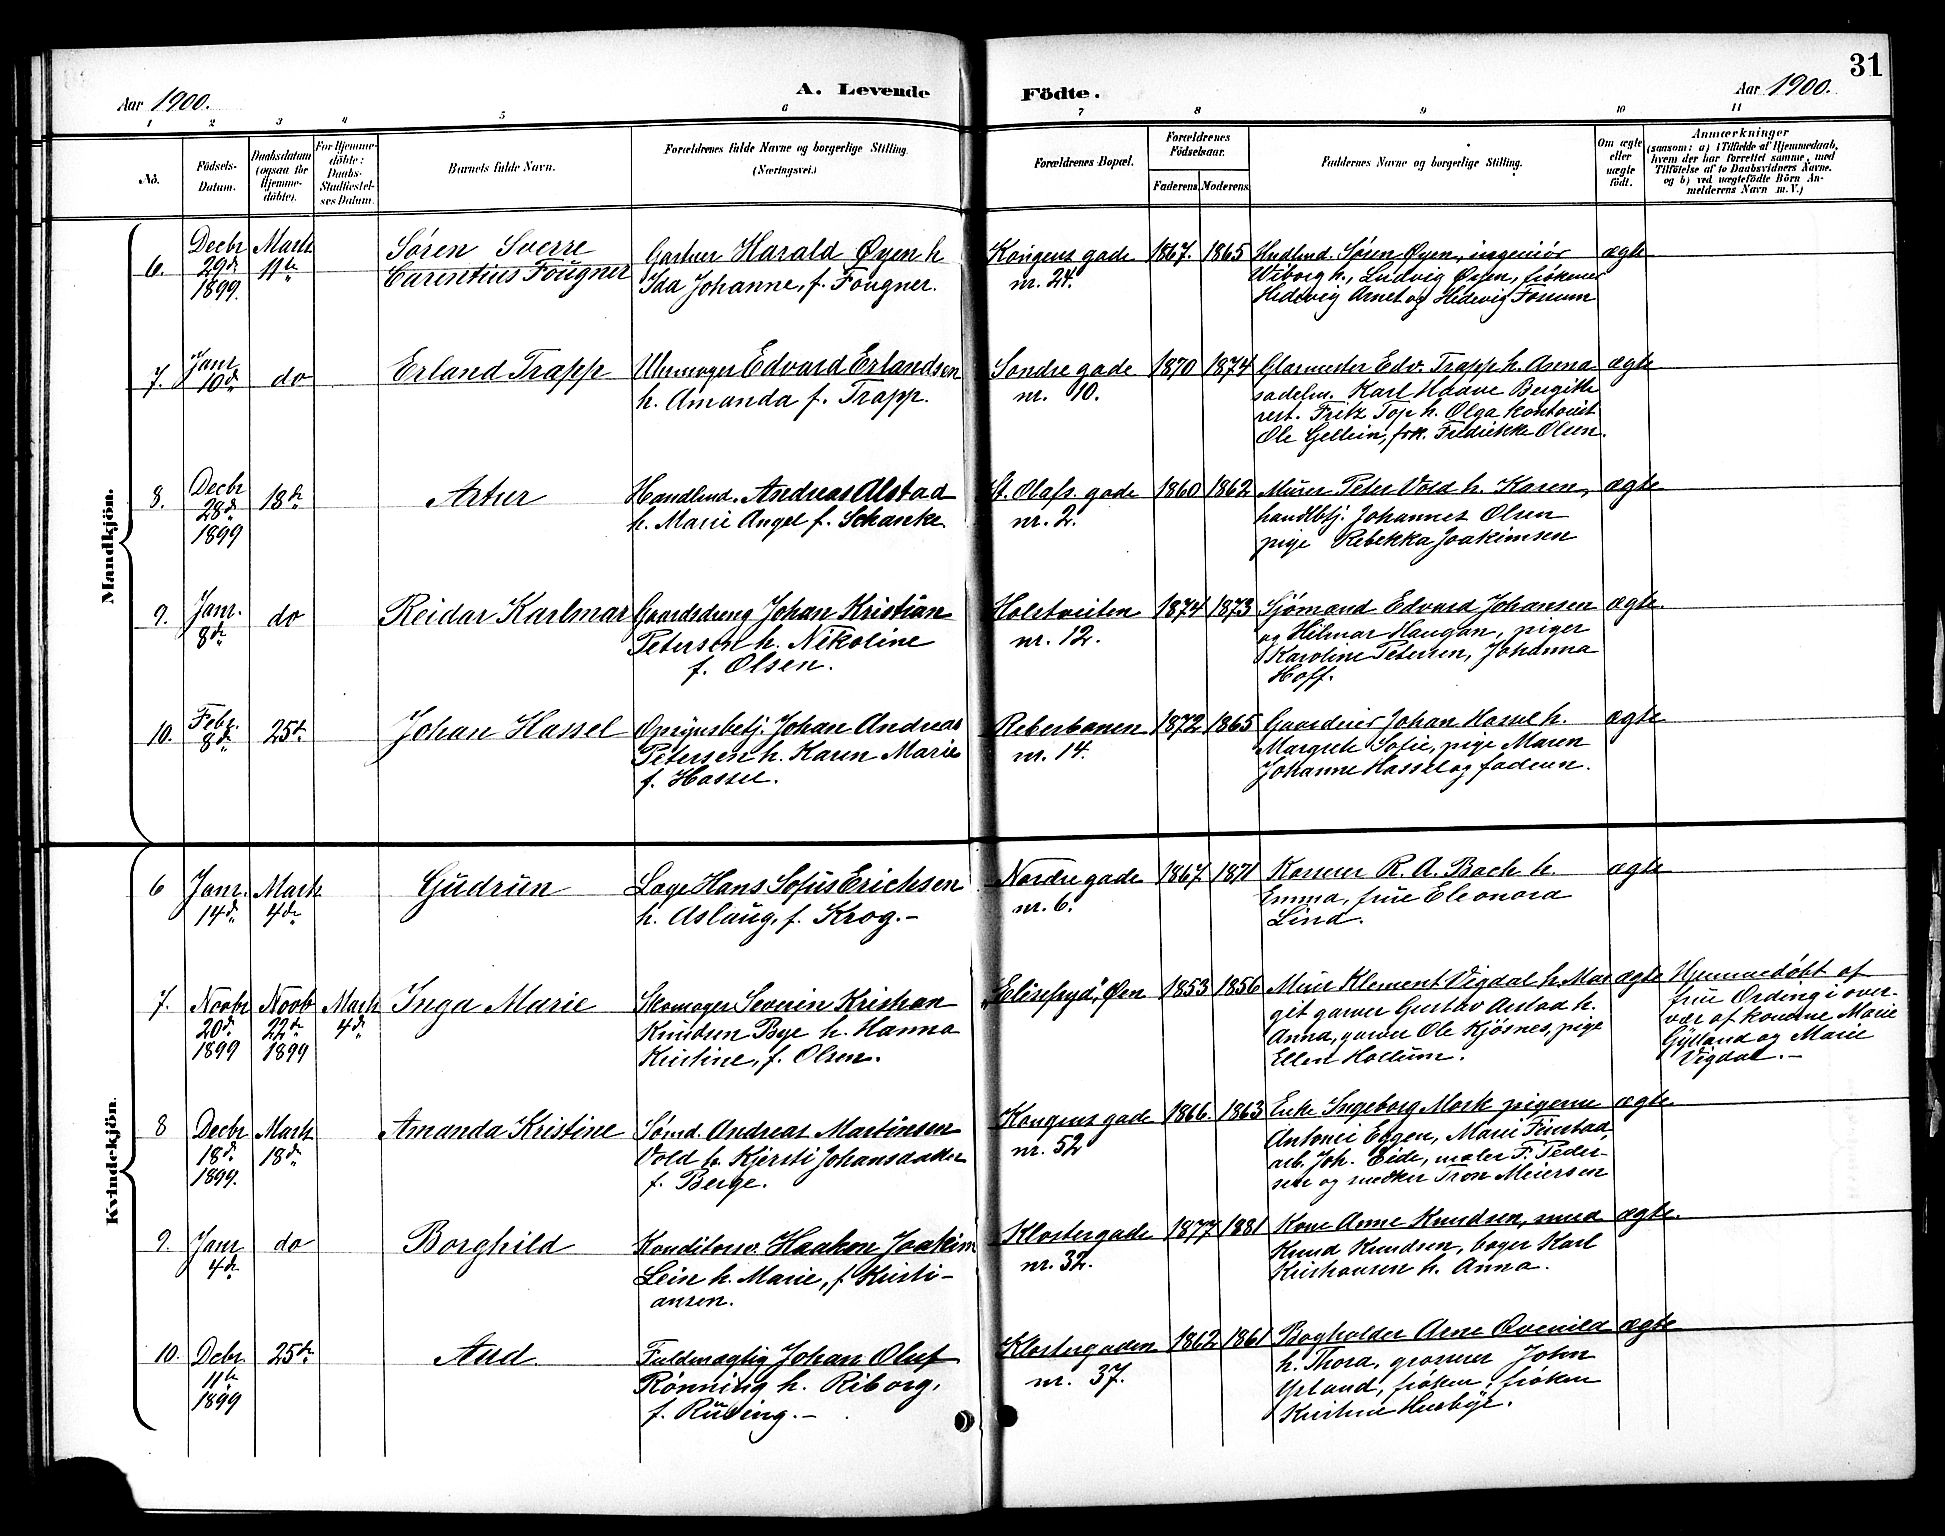 31
Aar 1900.
A. Levende
Födte.
Aar 1900.
1 2 3 4 5 6 7 8 9 10 11
No.
Födsels-
Datum.
Daabsdatum
(ogsaa for
Hjemme-
döbte).
For Hjemme-
döbte:
Daabs-
Stadfæstel-
ses Datum.
Barnets fulde Navn.
Forældrenes fulde Navne og borgerlige Stilling.
(Næringsvei.)
Forældrenes Bopæl.
Forældrenes
Födselsaar.
Faderens. Moderens.
Faddernes Navne og borgerlige Stilling.
Om ægte
eller
uægte
födt.
Anmærkninger
(saasom: a) i Tilfælde af Hjemmedaab,
hvem der har forrettet samme, med
Tilföielse af to Daabsvidners Navne.
og b) ved uægtefödte Börn An-
melderens Navn m. V.)
Mandkjön.
6.
Decbr
29de
1899.
Marts
11te
Søren Sverre
Carentius Fougner
Gartner Harald Øyen h
Ida Johanne, f. Fougner.
Kongens gade
nr. 24.
1867. 1865
Søren Øyen, ingeniör
Wiborg h., Ludvig Øyen, frökener
Hedevig Arnet og Hedevig Fossum
ægte
7.
Janr
10de
do
Erland Trapp
Uhrmager Edvard Erlandsen
h. Amanda f. Trapp.
Søndre gade
nr. 10.
1870 1874
Glarmester Edv. Trapp h. Anna
sadelm. Karl Haave Bergitte
rest. Fritz Top h. Olga kontorist
Ole Gellein, frk. Fredrikke Olsen.
ægte
8.
Decbr
28de
1899
18de
Artur
Handlmd. Andreas Alstad
h. Marie Angel f. Schanke
St. Olafs. gade
nr. 2.
1860 1862
Murer Peter Vold h. Karen,
handlbtj. Johannes Olsen
pige Rebekka Joakimsen
ægte
9.
Janr.
8de
do
Reidar Karlmar
Gaardsdreng Johan Kristian
Petersen h. Nikoline
f. Olsen.
Holstveiten
nr. 12.
1874 1873
Sjömand Edvard Johansen
og Hilmar Haugan, piger
Karoline Petersen, Johanna
Hoff.
ægte.
10.
Febr.
8de
25de
Johan Hassel
Opsynsbetj. Johan Andreas
Petersen h. Karen Marie
f. Hassel.
Reberbanen
nr. 14.
1872 1865
Gaardeier Johan Hassel h.
Margrete Sofie, pige Maren
Johanne Hassel og faderen.
ægte
Kvindekjön.
6
Janr.
14de
Marts
4de
Gudrun
Læge Hans Sofus Erichsen
h. Aslaug, f. Krog.-
Nordre gade
nr. 6.
1867. 1871
Kasserer R. A. Bach h.
Emma, frue Eleonora
Lind.
ægte
7.
Novbr
20de
1899
Novb
22de
1899
Marts
4de
Inga Marie
Skomager Severin Kristian
Knudsen Bye h. Hanna
Kristine, f. Olsen.
"Elisefryd", Øen
1853 1856
Murer Klement Vigdal h. Mar
git garver Gustav Arstad h.
Anna, garver Ole Kjösnes, pige
Ellen Hollum.
ægte
Hjemmedøbt af
frue Ording i over-
vær af konerne Marie
Gylland og Marie
Vigdal.-
8
Decbr
18de
1899.
Marts
18de
Amanda Kristine
Sømd. Andreas Martinsen
Vold h. Kjersti Johansdatter
f. Berge.
Kongens gade
nr. 52
1866. 1863
Enke Ingeborg Mork pigerne
Antonie Eggen, Marie Finstad,
arb. Joh. Eide, maler F. Peder-
sen og snedker Tron Meiersen
ægte
9.
Janr
4de
do
Borghild
Konditorsv. Haakon Joakim
Lein h. Marie, f. Kristi-
ansen.
Klostergade
nr. 32.
1877 1881
Kone Anne Knudsen, smed
Knud Knudsen, bager Karl
Kristiansen h. Anna.
ægte.
10.
Debr
11te
1899
25de
Aud
Fuldmægtig Johan Oluf
Rönning h. Riborg,
f. Ruding.-
Klostergaden
nr. 37.
1862 1861
Bogholder Arne Qvenild
h. Thora, grosserer John
Yrland, fröken, fröken
Kristine Husbye.
ægte